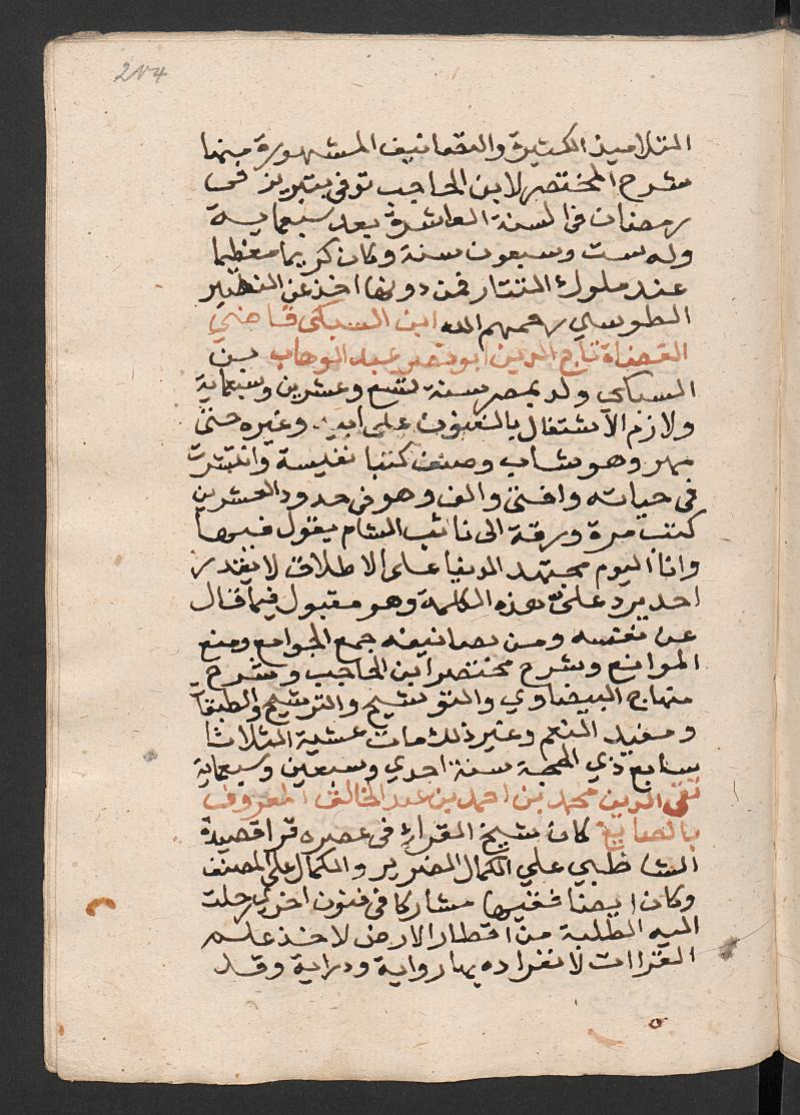 204
التلاميذ الكثيرة والتصانيف المشهورة منها
شرح المختصر لابن الحاجب توفي بتبريز في
رمضان في السنة العاشرة بعد سبعماية
وله ست وسبعون سنة وكان كريما معظما
عند ملوك التتار فمن دونها اخذ عن النظير
الطوسي رحمهم الله ابن السبكي قاضي
القضاة تاج الدين ابو نصر عبد الوهاب بن
السبكي ولد بمصر سنة تسع وعشرين وسبعماية
ولازم الاشتغال بالفنون على ابيه وغيره حتى
مهر وهو شاب وصنف كتبا نفيسة وانتشرت
في حياته وافتى والف وهو في حدود العشرين
كتب مرة ورقة الى نائب الشام يقول فيها
وانا اليوم مجتهد الدنيا على الاطلاق لا يقدر
احد يرد على هذه الكلمة وهو مقبول فيما قال
عن نفسه ومن تصانيفه جمع الجوامع ومنع
الموانع وشرح مختصر ابن الحاجب وشرح
منهاج البيضاوي والتوشيح والترشيح والطبقات
ومفيد النعم وغير ذلك مات عشية الثلاثا
سابع ذي الحجة سنة احدي وسبعين وسبعماية
تقي الدين محمد بن احمد بن عبد الخالق المعروف
بالصايغ كان شيخ القراء في عصره قرا قصيدة
الشاطبي علي الكمال الضرير والكمال علي المصنف
وكان ايضا فقيها مشاركا في فنون اخري رحلت
اليه الطلبة من اقطار الارض لاخذ علم
القراات لانفراده بها رواية ودراية وقد